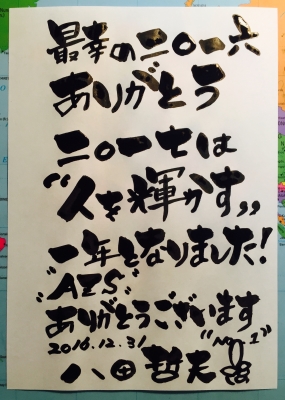 最幸の二〇一六
ありがとう
二〇一七は
“人を輝かす”
一年となりました!
“AZS”
ありがとうございます
2016.12.31
“No.1”
八田哲夫